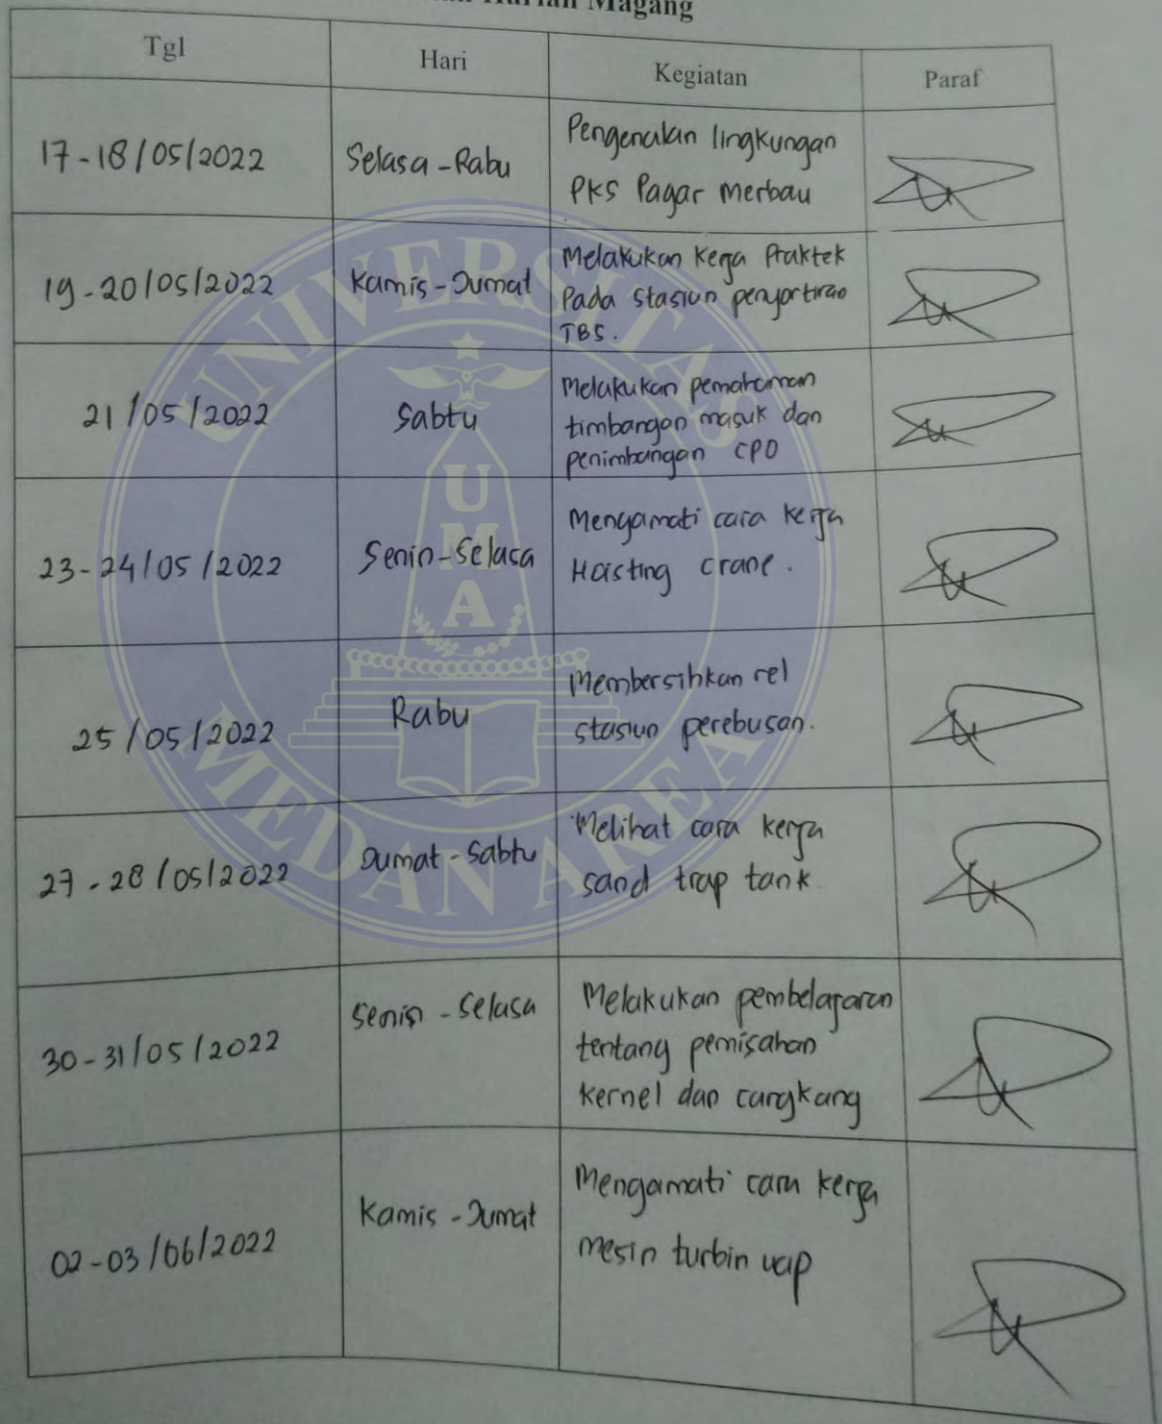 Harian Magang
Tgl
Hari
Kegiatan
Paraf
17-18/05/2022
Selasa-Rabu
Pengenalan lingkungan
PKS Pagar Merbau
19-20/05/2022
Kamis-Jumat
Melakukan Kerja Praktek
Pada stasiun penyortiran
TBS.
21/05/2022
Sabtu
Melakukan pemahaman
timbangan masuk dan
penimbangan CPO
23-24/05/2022
Senin-Selasa
Mengamati cara kerja
Hoisting crane.
25/05/2022
Rabu
Membersihkan rel
stasiun perebusan.
27-28/05/2022
Jumat-Sabtu
Melihat cara kerja
sand trap tank.
30-31/05/2022
Senin-Selasa
Melakukan pembelajaran
tentang pemisahan
kernel dan cangkang
02-03/06/2022
Kamis-Jumat
Mengamati cara kerja
mesin turbin uap
UNIVERSITAS
UMA
MEDAN AREA